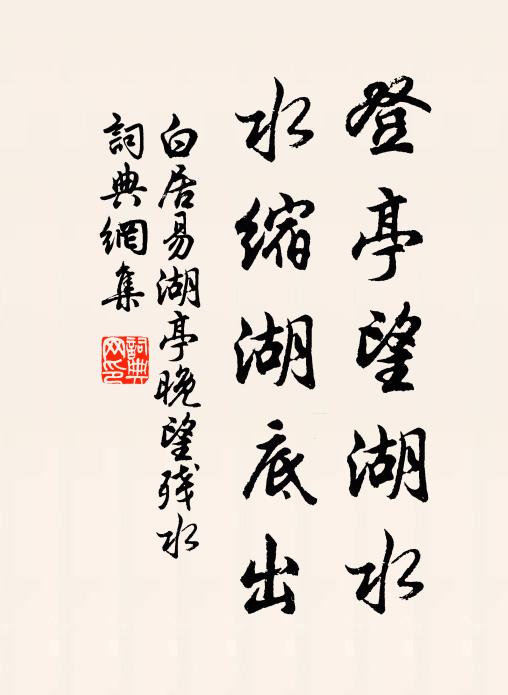 登亭望湖水
水缩湖底出
白居易湖亭晚望残水
詞典網集
詞典
网印